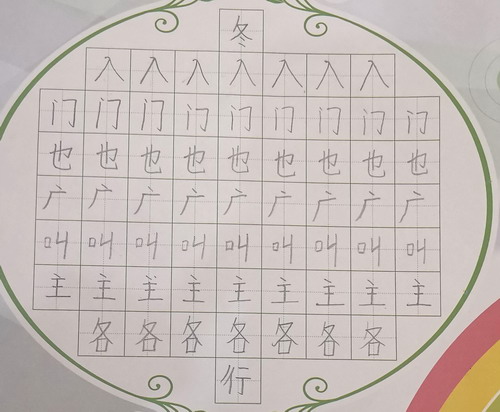 冬
入入入入入入入
门门门门门门门门门
也也也也也也也也也
广广广广广广广广广
叫叫叫叫叫叫叫叫叫
主主主主主主主主主
各各各各各各各
行